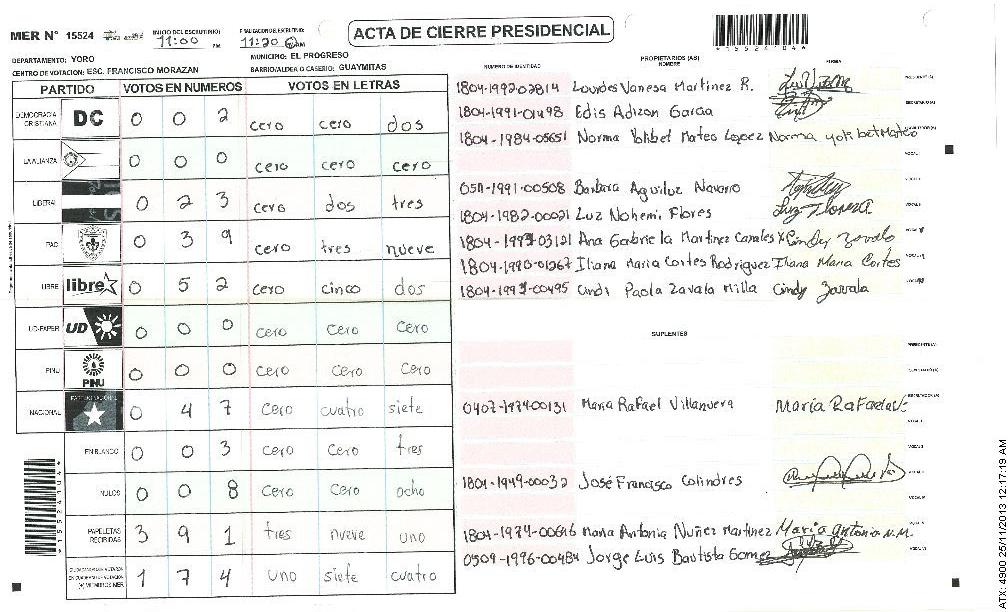 MER N° 15524
INICIO DEL ESCRUTINIO:
11:00 PM
11:20 AM
ACTA DE CIERRE PRESIDENCIAL
DEPARTAMENTO: YORO
MUNICIPIO: EL PROGRESO
CENTRO DE VOTACION: ESC. FRANCISCO MORAZAN
BARRIO/ALDEA O CASERIO: GUAYMITAS
PARTIDO VOTOS EN NUMEROS VOTOS EN LETRAS
DEMOCRACIA CRISTIANA DC 0 0 2 cero cero dos
LA ALIANZA 0 0 0 cero cero cero
LIBERAL 0 2 3 cero dos tres
PAC 0 3 9 cero tres nueve
LIBRE libre 0 5 2 cero cinco dos
UD-FAPER UD 0 0 0 cero cero cero
PINU PINU 0 0 0 cero cero cero
NACIONAL 0 4 7 cero cuatro siete
EN BLANCO 0 0 3 cero cero tres
NULOS 0 0 8 cero cero ocho
PAPELETAS RECIBIDAS 3 9 1 tres nueve uno
1 7 4 uno siete cuatro
NUMERO DE IDENTIDAD
PROPIETARIOS (AS)
NOMBRE
FIRMA
1804-1992-02814 Lourdes Vanesa Martinez R.
1804-1991-01498 Edis Adizon Garcia
1804-1984-05651 Norma Yolibet Mateo Lopez Norma yolibet Mateo
0511-1991-00508 Barbara Aguiluz Navarro
1804-1982-00021 Luz Nohemi Flores Luz Flores
Ana Gabriela Martinez Canales Cindy Zavala
1804-1990-01267 Iliana Maria Cortes Rodriguez Iliana Maria Cortes
Cindi Paola Zavala Milla Cindy Zavala
SUPLENTES
0407-1974-00131 Maria Rafael Villanueva María Rafaela V.
1801-1949-00032 José Francisco Colindres
1804-1974-00616 Maria Antonia Nuñez Martinez María Antonia N.M.
0509-1996-00484 Jorge Luis Bautista Gomez
ATX: 4900 25/11/2013 12:17:19 AM